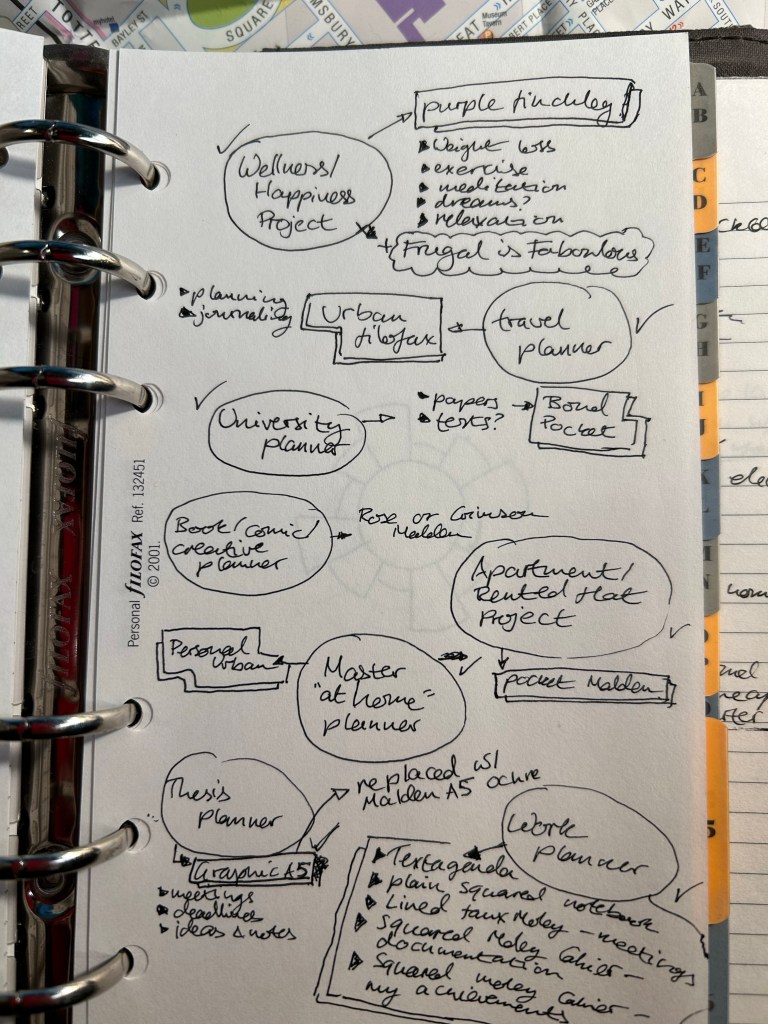 STREET
TOTTE
BAYLEY ST
SQUARE
MSBURY
Museum
Tavern
PLACE
WAY
SOUTH
purple finchley
Wellness/
Happiness
Project
Weight loss
exercise
meditation
dreams?
relaxation
+ Frugal is Faboulous
planning
journaling
Urban
filofax
travel
planner
University
planner
papers
texts?
Bond
Pocket
Book/comic/
creative
planner
Rose or Crimson
Malden
Apartment/
Rented flat
Project
Personal
urban
Master
"at home"
planner
pocket Malden
Thesis
planner
replaced w/
Malden A5 ochre
Graphic A5
meetings
deadlines
ideas & notes
Work
planner
Textagenda
plain, squared notebook
Lined faux Moley - meetings
Squared Moley Cahier -
documentation
Squared moley Cahier -
my achievements
Personal fILOFAX Ref. 132451
© 2001.
fILOFAX
A
B
C
D
E
F
G
H
I
J
K
L
M
N
5